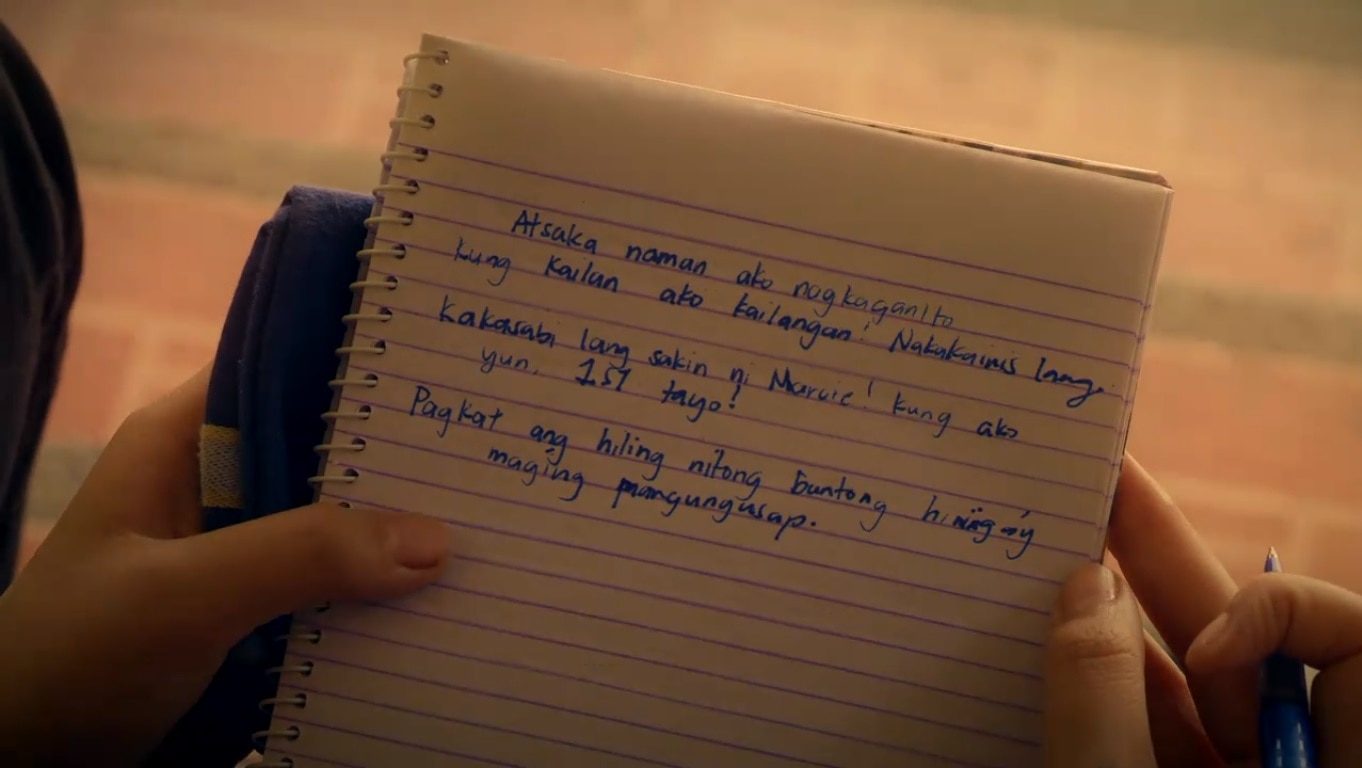 Atsaka naman ako nagkaganito
kung kailan ako kailangan! Nakakainis lang.
Kakasabi lang sakin ni Marvic! kung ako
yun, 1st tayo!
Pagkat ang hiling nitong buntong hininga'y
maging pangungusap.